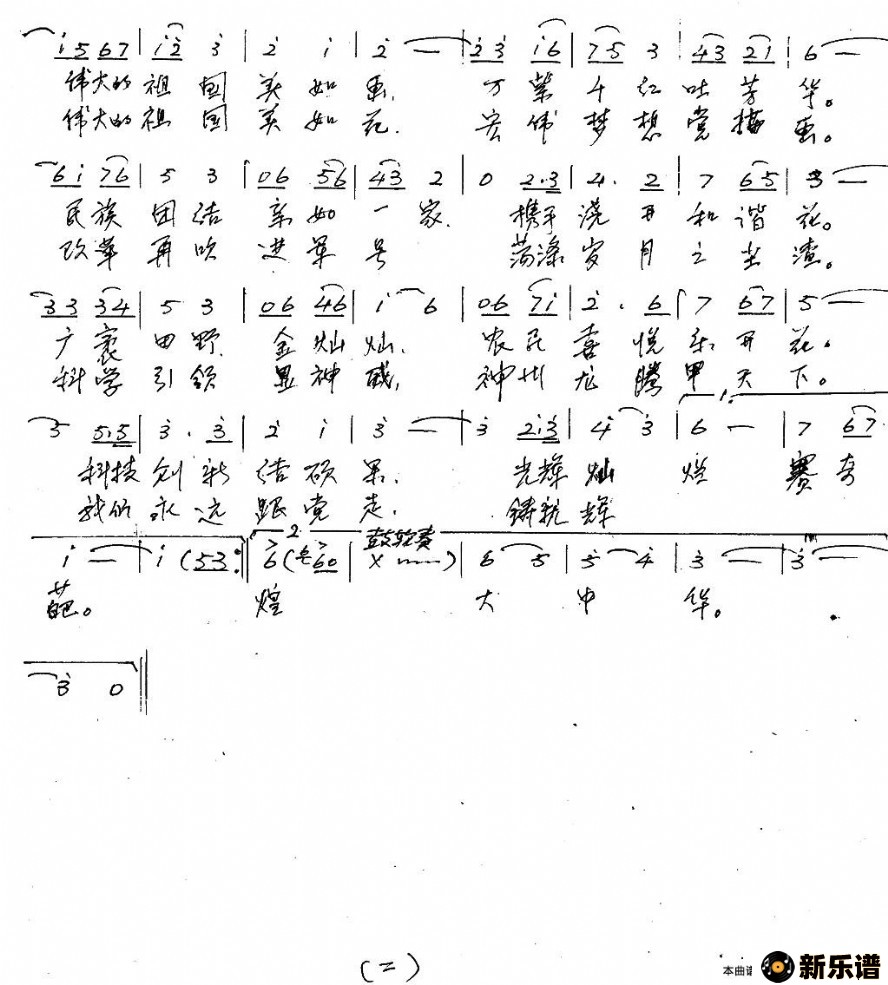 i5 67 | i2 3 | 2 i | 2 — | 23 i6 | 75 3 | 43 21 | 6 —
伟大的祖国美如画. 万紫千红吐芳华。
伟大的祖国美如花. 宏伟梦想党描画。
6i 76 | 5 3 | 06 56 | 43 2 | 0 2.3 | 4. 2 | 7 65 | 3 —
民族团结亲如一家. 携手浇开和谐花。
改革再吹进军号 荡涤岁月之尘渣。
33 34 | 5 3 | 06 46 | i 6 | 06 7i | 2. 6 | 7 67 | 5 —
广袤田野.金灿灿. 农民喜悦乐开花.
科学引领显神威, 神州龙腾甲天下。
1.
5 5.5 | 3. 3 | 2 i | 3 — | 3 2i3 | 4 3 | 6 — | 7 67
科技创新结硕果. 光辉灿烂赛奇
我们永远跟党走. 铸就辉
2. 鼓轮奏
i — | i (53 :| 6 ( 60 | X ) | 6 5 | 5 4 | 3 — | 3 —
葩。 煌 大中华。
3 0 ‖
(二)
本曲谱
新乐谱